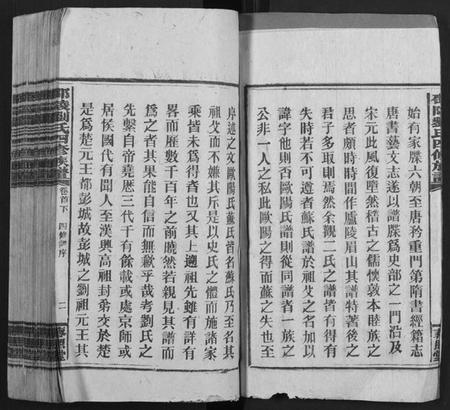 始有家牒六朝至唐矜重門第隋書經籍志
唐書藝文志遂以譜牒爲史部之一門沿及
宋元此風復墜然稽古之儒懷敦本睦族之
思者頗時時間作廬陵眉山其譜特著後之
君子多取則焉然余觀二氏之譜者有得有
失時若不可遵者蘇氏譜於祖父之名加以
諱字他則否歐陽氏譜則從同譜者一族之
公非一人之私此歐陽之得而蘇之失也至
序述之文歐陽氏蘇氏皆名蘇氏乃至名其
祖父而不嫌其斥是以史氏之體而施諸家
乘皆未爲得者也又其上遡祖先雖有詳有
畧而歷數千百年之前曉然若親見其譜而
爲之者其果能自信而無歉乎哉考劉氏之
先繫自帝堯歷三代千有餘載或處京師或
居侯國代有聞人至漢興高祖封弟交於楚
是爲楚元王都彭城故彭城之劉祖元王其
劉氏四修族譜
卷首下
四修譜序
二